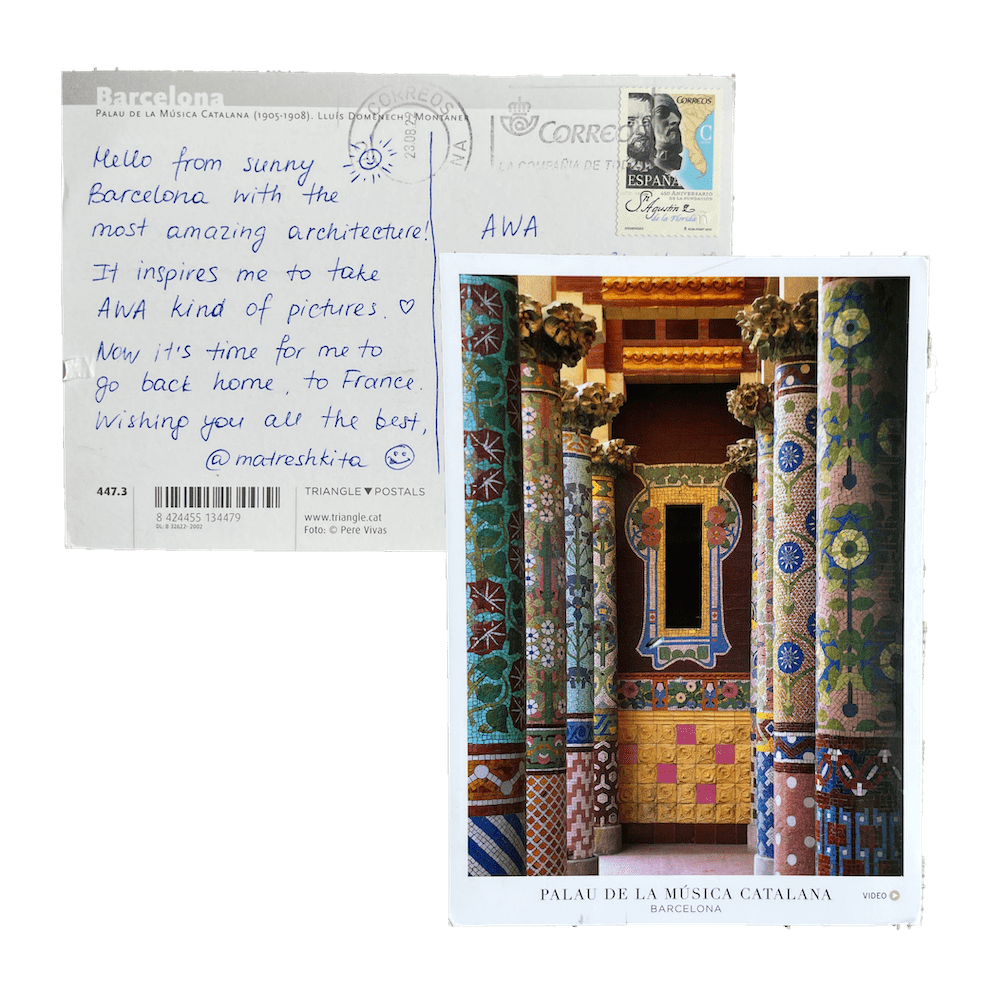 Barcelona
PALAU DE LA MÚSICA CATALANA (1905-1908). LLUÍS DOMÈNECH I MONTANER
CORREOS
23.08.2
NA
CORREOS
LA COMPAÑIA DE TO
CORREOS
C
ESPAÑA
450 ANIVERSARIO
DE LA FUNDACIÓN
Sn Agustín
de la Florida
Hello from sunny
Barcelona with the
most amazing architecture!
It inspires me to take
AWA kind of pictures. ♡
Now it's time for me to
go back home, to France.
Wishing you all the best,
@matreshkita
AWA
447.3
8 424455 134479
DL: B 32622- 2002
TRIANGLE▼POSTALS
www.triangle.cat
Foto: © Pere Vivas
PALAU DE LA MÚSICA CATALANA
BARCELONA
VIDEO